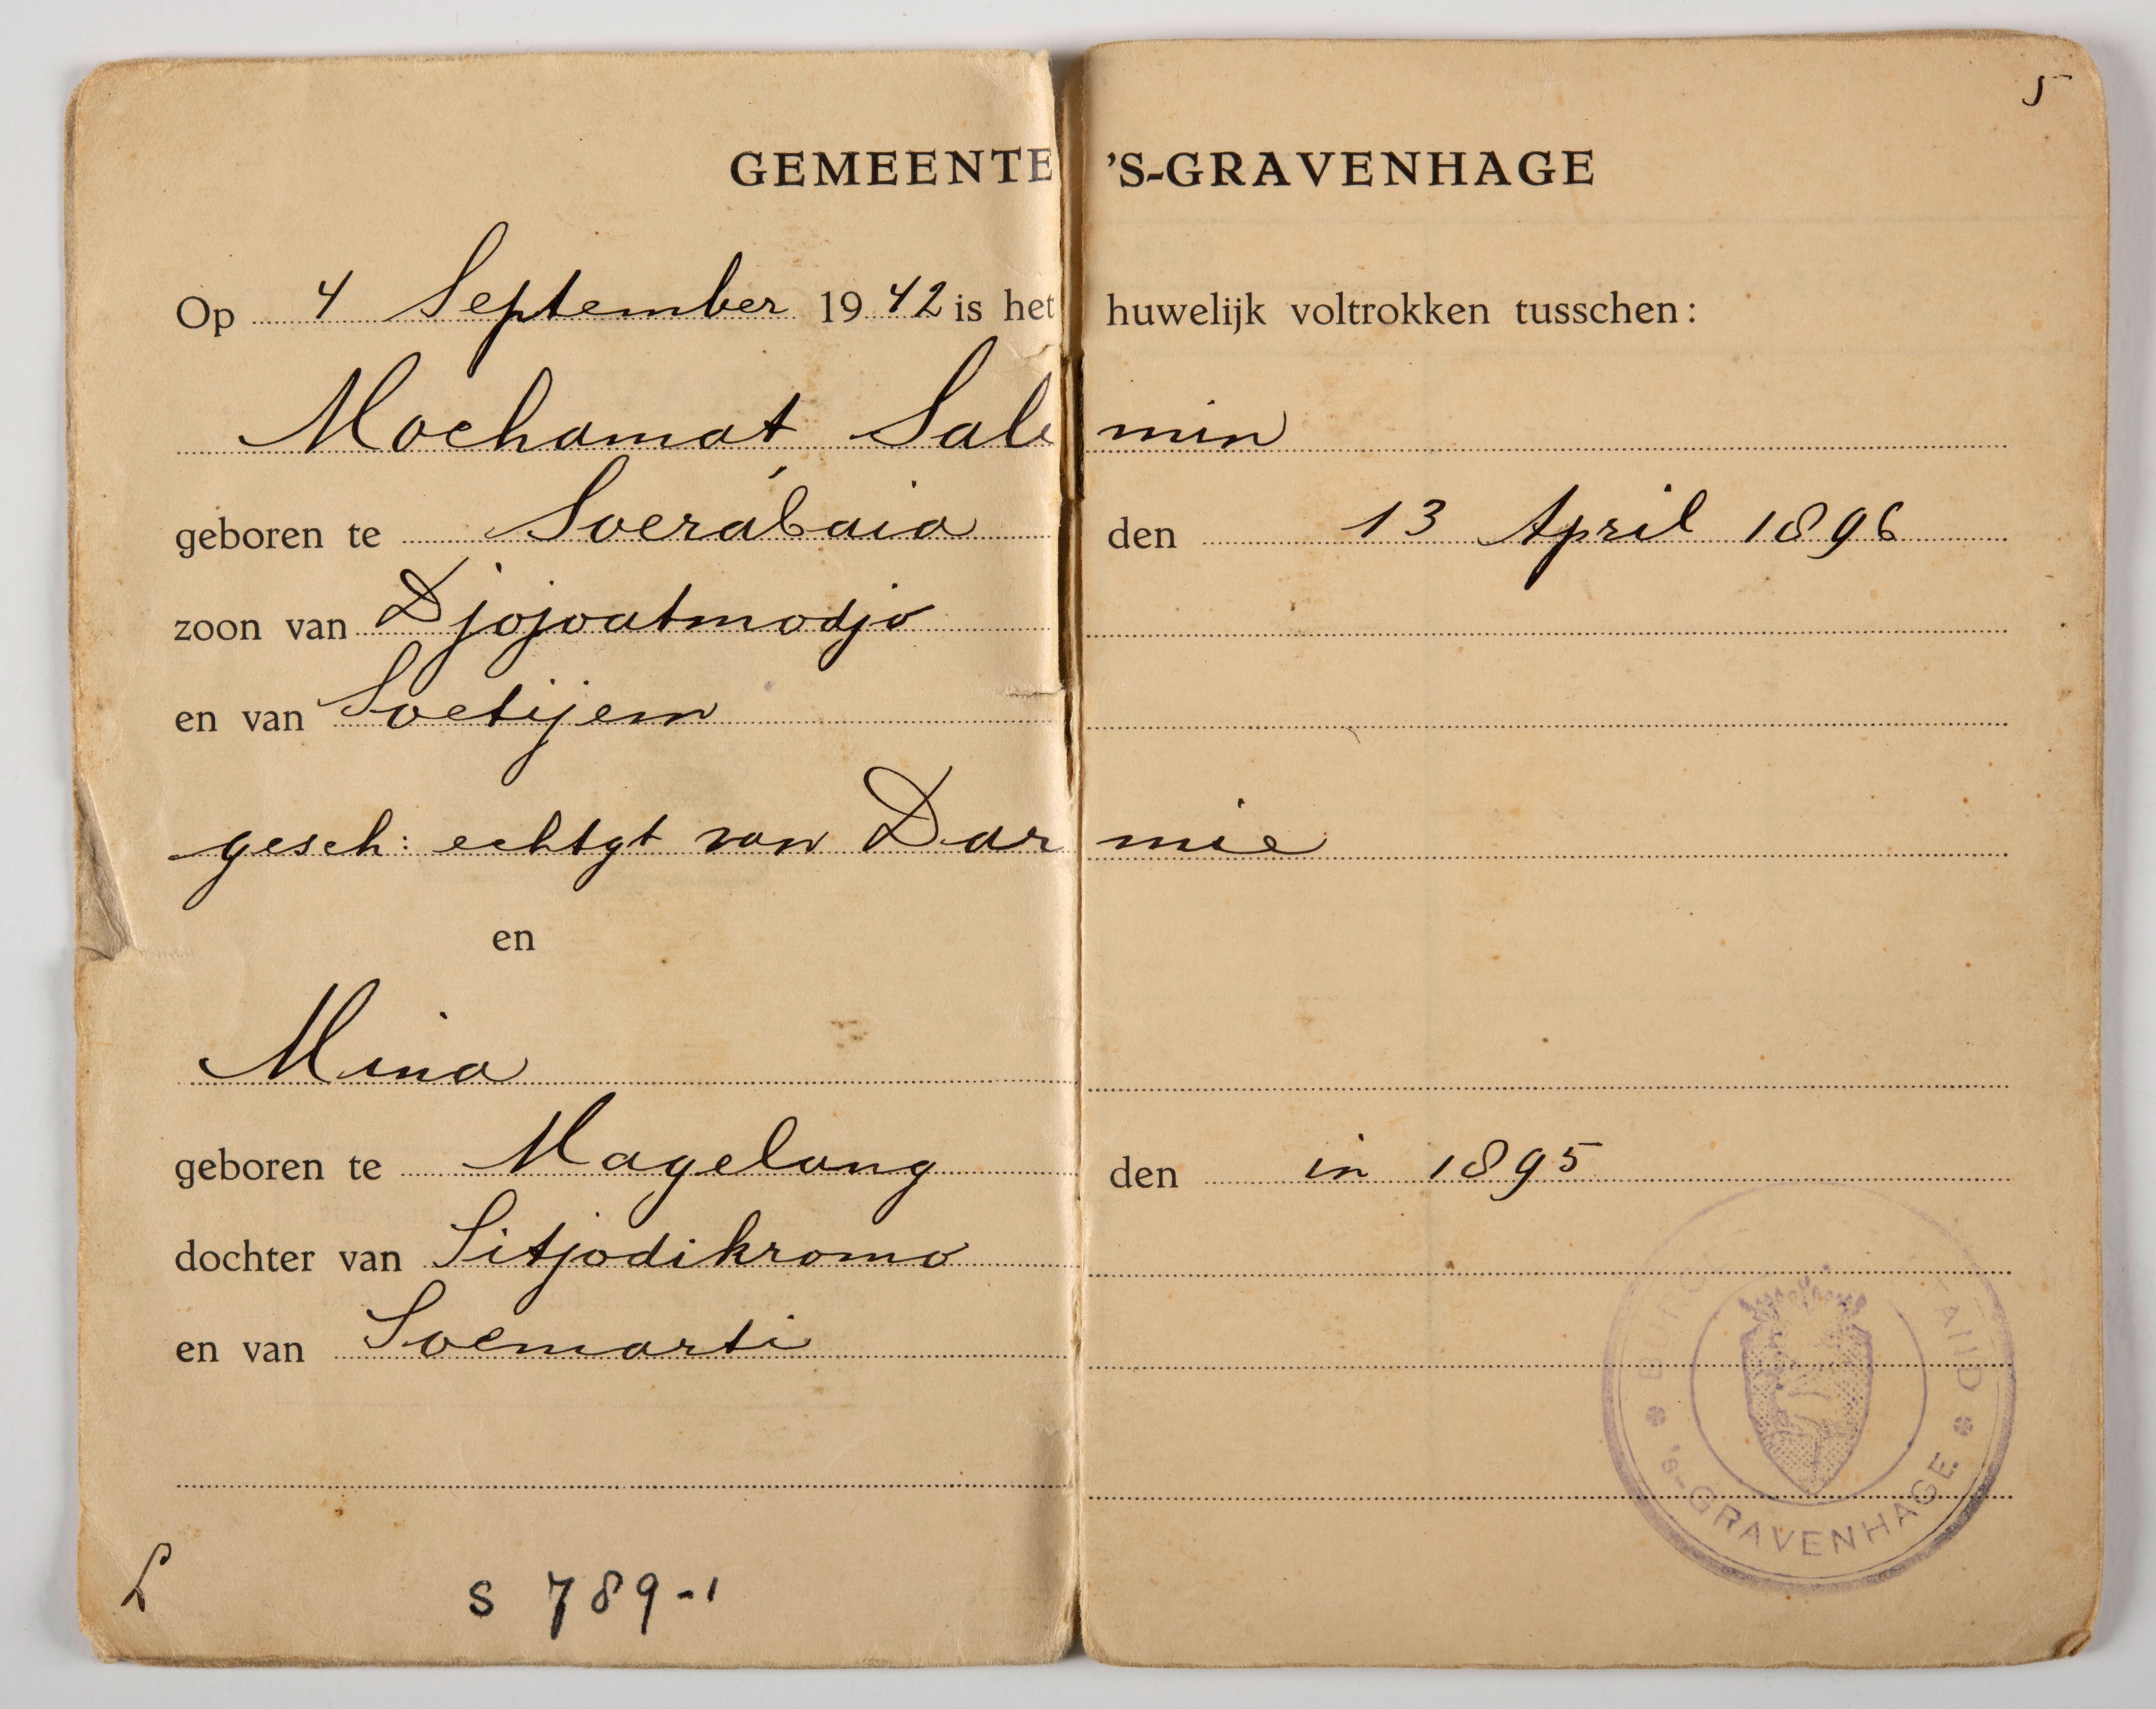 5
GEMEENTE 'S-GRAVENHAGE
Op 4 September 1942 is het huwelijk voltrokken tusschen:
Mochamat Salimin
geboren te Soerabaia den 13 April 1896
zoon van Djojoatmodjo
en van Soetijem
gesch: echtgt van Darmie
en
Mina
geboren te Magelang den in 1895
dochter van Sitjodikromo
en van Soemarti
S 789-1
BURG TAND
'S-GRAVENHAGE